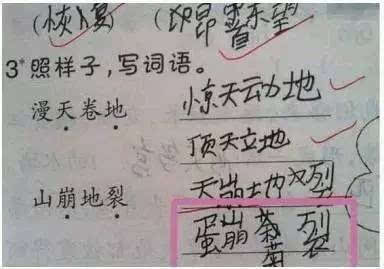 (恢复) (昂首东望
3*照样子，写词语。
漫天卷地 惊天动地
顶天立地
山崩地裂 天崩地裂
蛋崩菊裂
菊